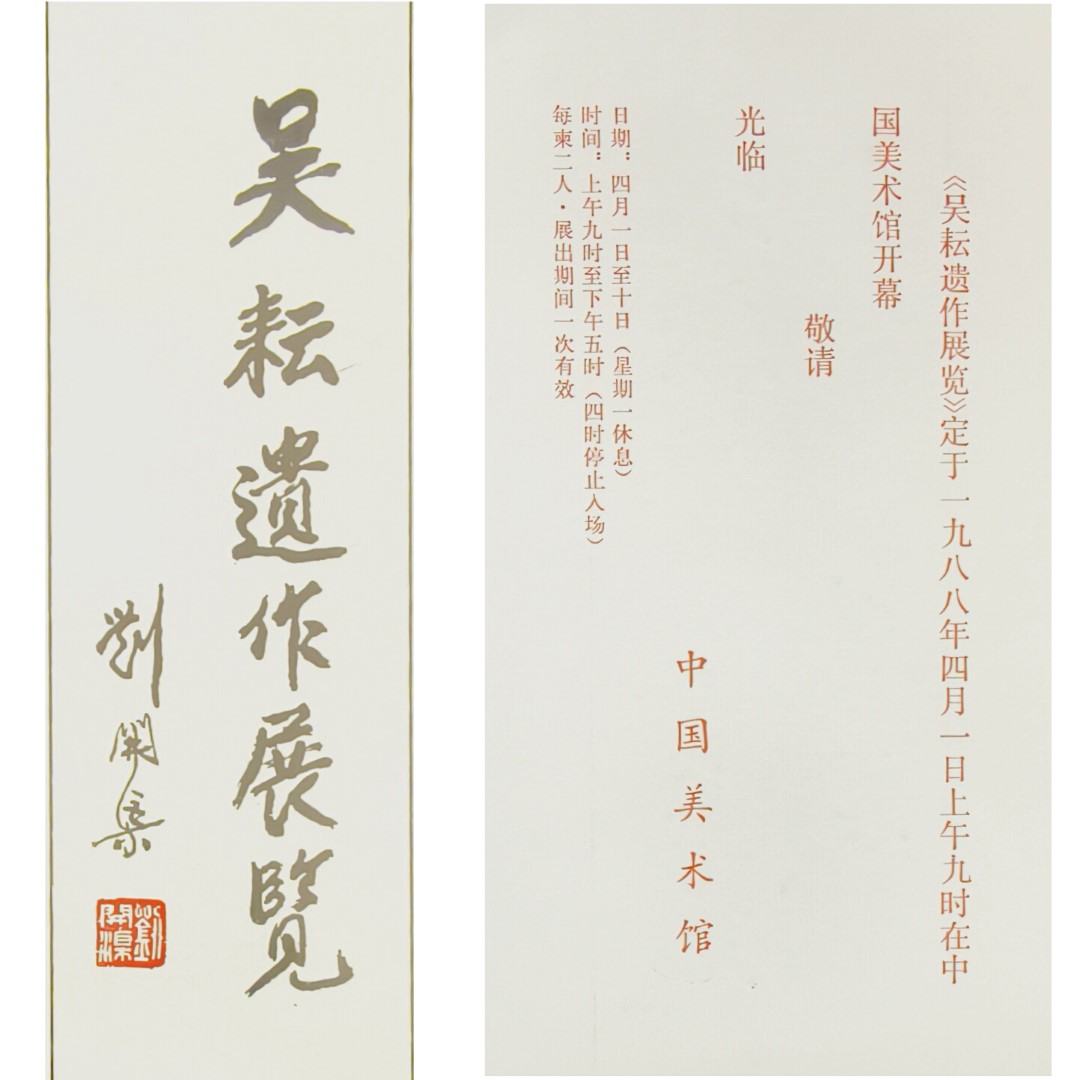 吴耘遺作展覽
劉開渠
劉開渠
《吴耘遗作展览》定于一九八八年四月一日上午九时在中
国美术馆开幕
敬请
光临
中国美术馆
日期：四月一日至十日（星期一休息）
时间：上午九时至下午五时（四时停止入场）
每柬二人·展出期间一次有效